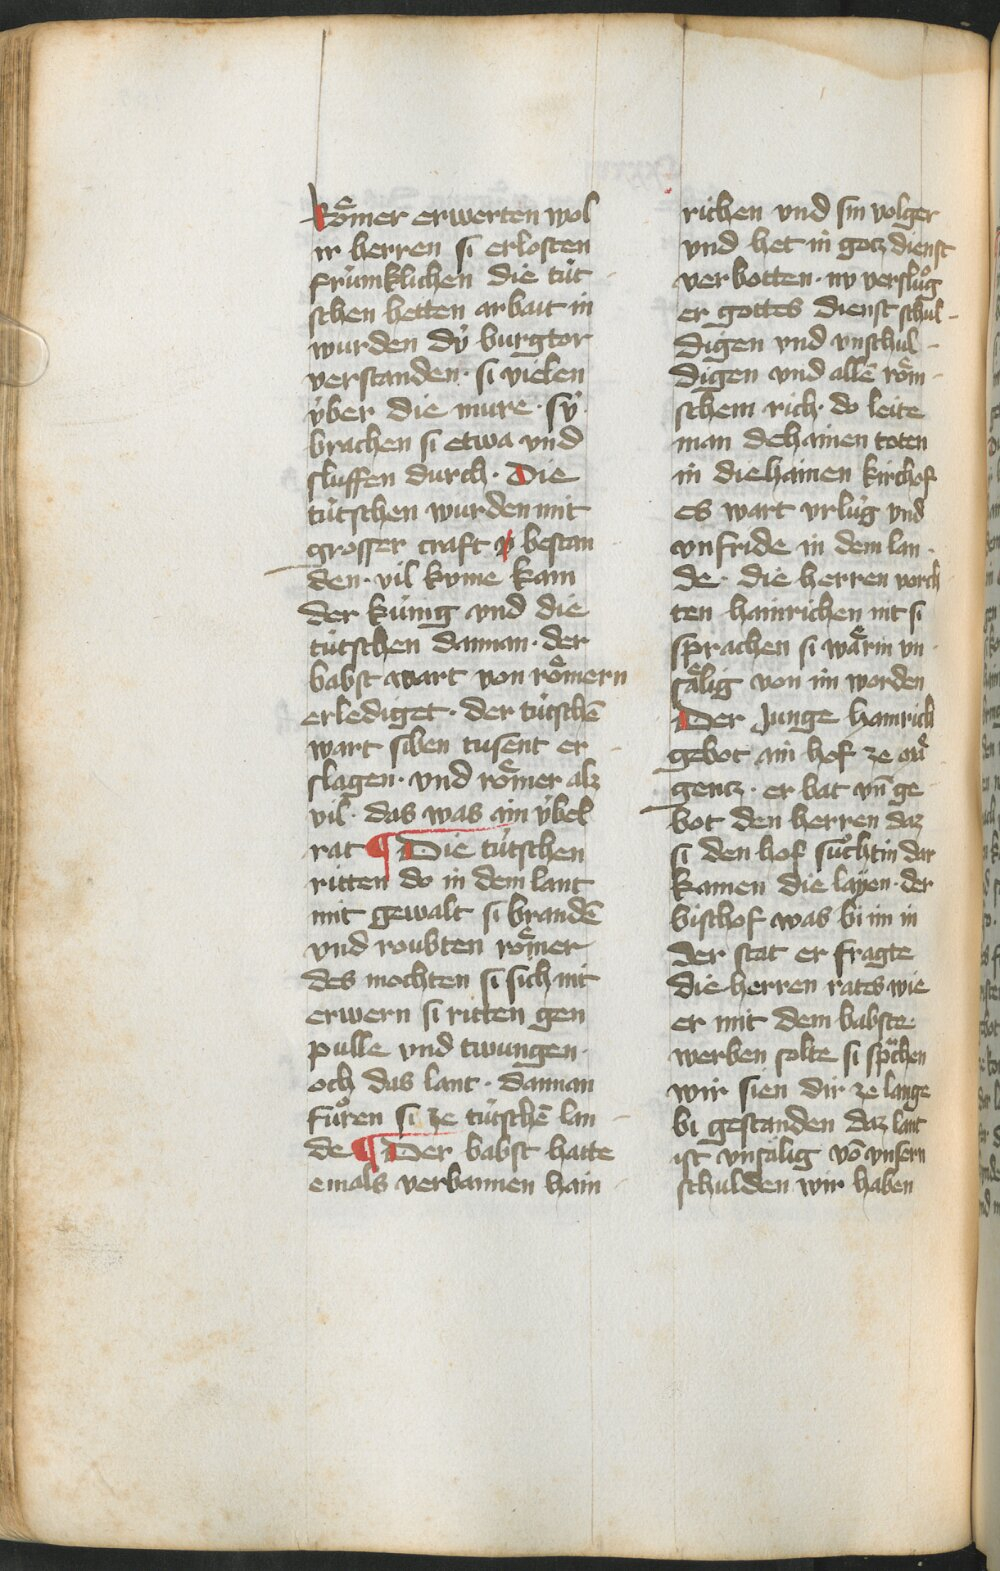 Roͤmer erwerten wol
ir herren si erlosten
frúmklichen die tút
schen hetten arbait in
wurden dú burgtor
verstanden · si vielen
v́ber die mure · sy
brachen si etwa vnd
sluffen durch · Die
tútschen wurden mit
grosser craft bestan
den · vil kvme kam
der kúnig vnd die
tútschen dannan · der
babst wart von roͤmern
erlediget · der tútschē
wart siben tusent er
slagen · vnd roͤmer alz
vil · das was ain v́bel
rat ¶ Die tútschen
ritten do in dem lant
mit gewalt si brandē
vnd roubten roͤmer
des mochten si sich nit
erwern si ritten gen
pulle vnd twungen ·
och das lant · dannan
fuͦren si ze tútschē lan
de ¶ Der babst hatte
emals verbannen hain
richen vnd sin volger
vnd het in gotz dienst
verbotten · nv versluͦg
er gottes dienst schul
digen vnd vnschul
digen vnd allē roͤm
schem rich · do leite
man dehainen toten
in diehainen kirchof
es wart vrlúg vnd
vnfride in dem lan
de · die herren vorch
ten hainrichen nit si
sprachen si waͤrin vn
saͤlig von im worden
Der Junge hainrich
gebot ain hof ze 
gentz · er bat vn̄ ge
bot den herren daz
si den hof suͦchtin dar
kamen die layen · der
bischof was bi im in
der stat er fragte
die herren rates wie
er mit dem babste
werben solte si spͣchen
wir sien dir ze lange
bi gestanden daz lant
ist vnsalig vō vnsern
schulden wir haben